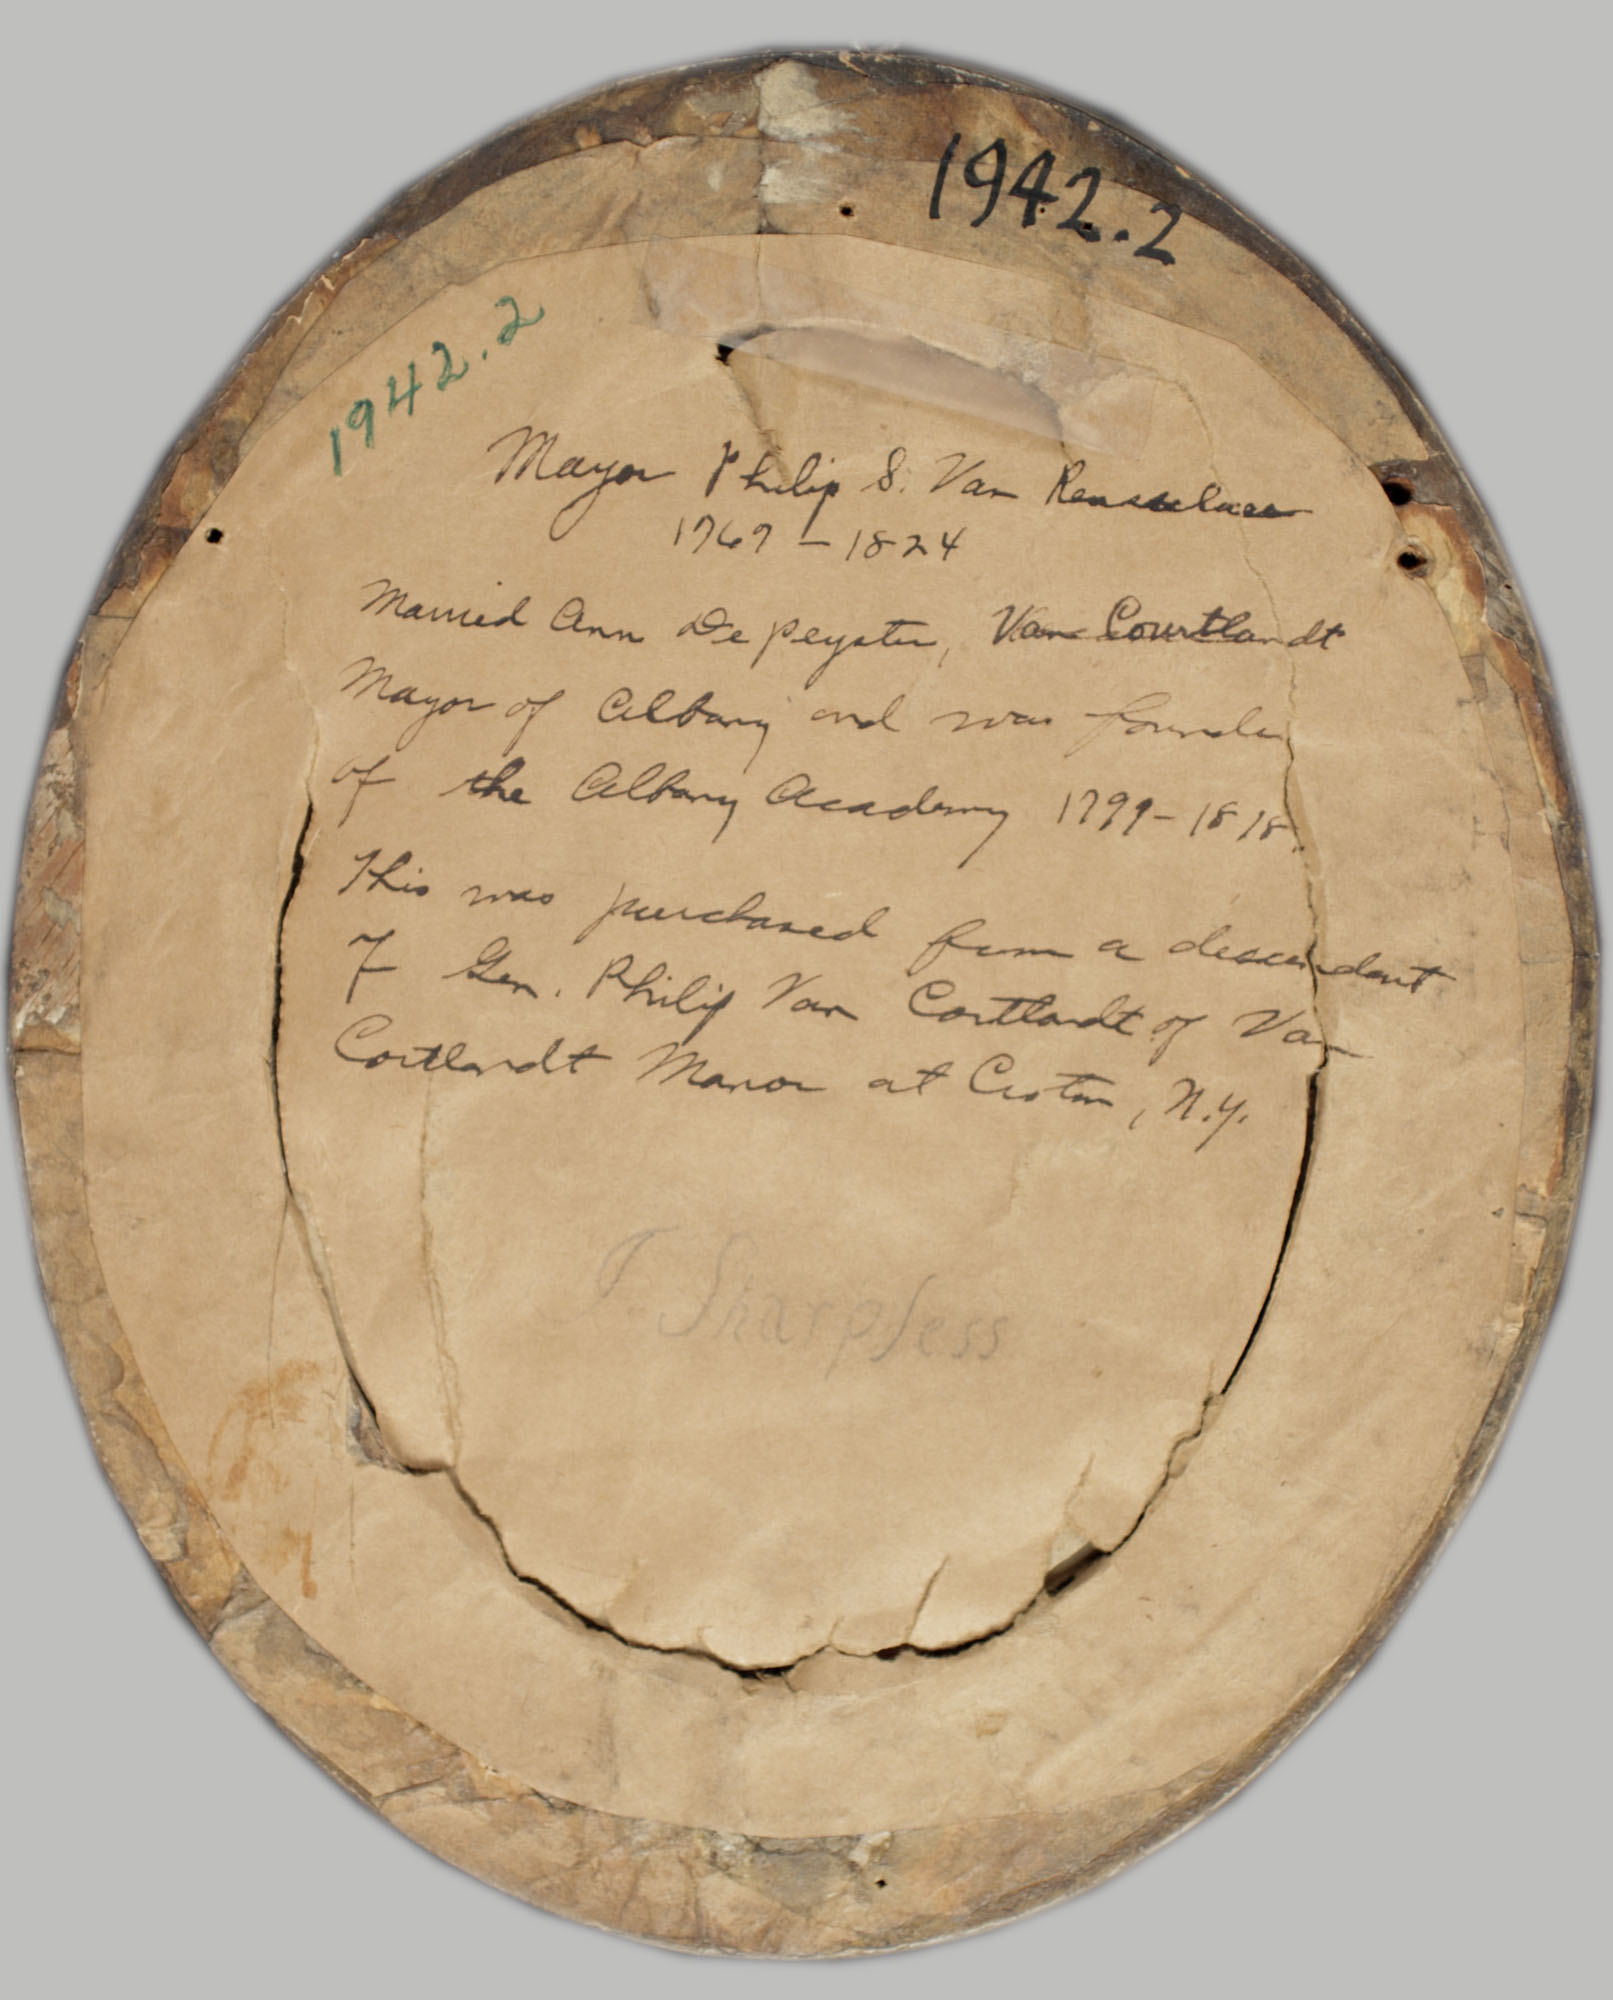 1942.2
1942.2
Mayor Philip S. Van Rensselaer
1767 – 1824
Married Ann De Peyster, Van Courtlandt
Mayor of Albany and was founder
of the Albany Academy 1799 – 1818.
This was purchased from a descendant
of Gen. Philip Van Cortlandt of Van
Cortlandt Manor at Croton, N.Y.
J. Sharpless